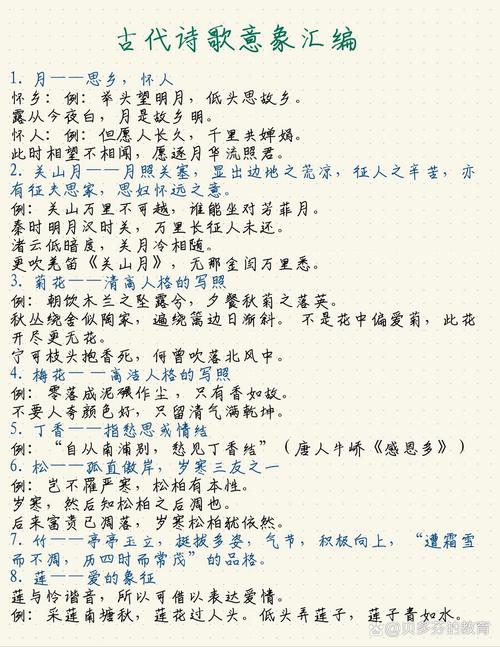 古代诗歌意象汇编
1. 月——思乡，怀人
怀乡：例：举头望明月，低头思故乡。
露从今夜白，月是故乡明。
怀人：例：但愿人长久，千里共婵娟。
此时相望不相闻，愿逐月华流照君。
2. 关山月——月照关塞，显出边地之荒凉，征人之辛苦，亦
有征夫思家，思妇怀远之意。
例：关山万里不可越，谁能坐对芳菲月。
秦时明月汉时关，万里长征人未还。
渚云低暗度，关月冷相随。
更吹羌笛《关山月》，无那金闺万里愁。
3. 菊花——清高人格的写照
例：朝饮木兰之坠露兮，夕餐秋菊之落英。
秋丛绕舍似陶家，遍绕篱边日渐斜。 不是花中偏爱菊，此花
开尽更无花。
宁可枝头抱香死，何曾吹落北风中。
4. 梅花——高洁人格的写照
例：零落成泥碾作尘，只有香如故。
不要人夸颜色好，只留清气满乾坤。
5. 丁香——指愁思或情结
例：“自从南浦别，愁见丁香结”（唐人牛峤《感恩多》）
6. 松——孤直傲岸，岁寒三友之一
例：岂不罹严寒，松柏有本性。
岁寒，然后知松柏之后凋也。
后来富贵已凋落，岁寒松柏犹依然。
7. 竹——亭亭玉立，挺拔多姿，气节，积极向上，“遭霜雪
而不凋，历四时而常茂”的品格。
8. 莲——爱的象征
莲与怜谐音，所以可借以表达爱情。
例：采莲南塘秋，莲花过人头。低头弄莲子，莲子青如水。
@贝多芬的教育